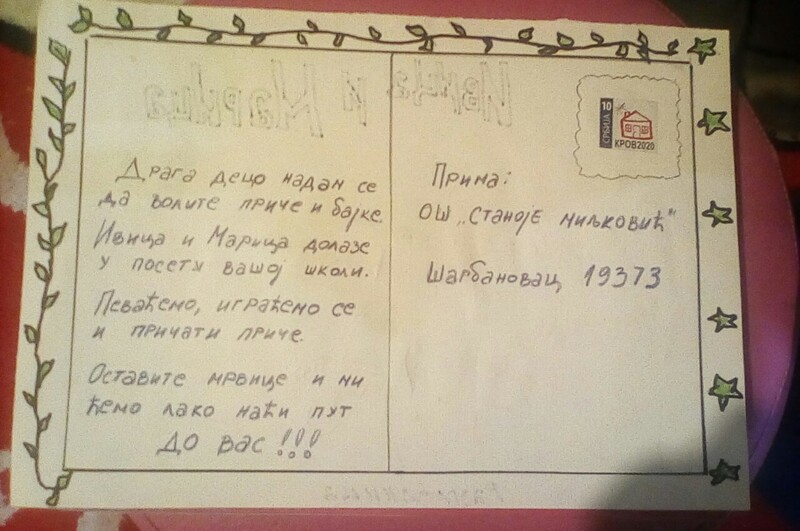 Ивица и Марица
Драга децо надам се
да волите приче и бајке.
Ивица и Марица долазе
у посету вашој школи.
Певаћемо, играћемо се
и причати приче.
Оставите мрвице и ми
ћемо лако наћи пут
ДО ВАС !!!
СРБИЈА 10
КРОВ2020
Прима:
ОШ „Станоје Миљковић"
Шарбановац 19373